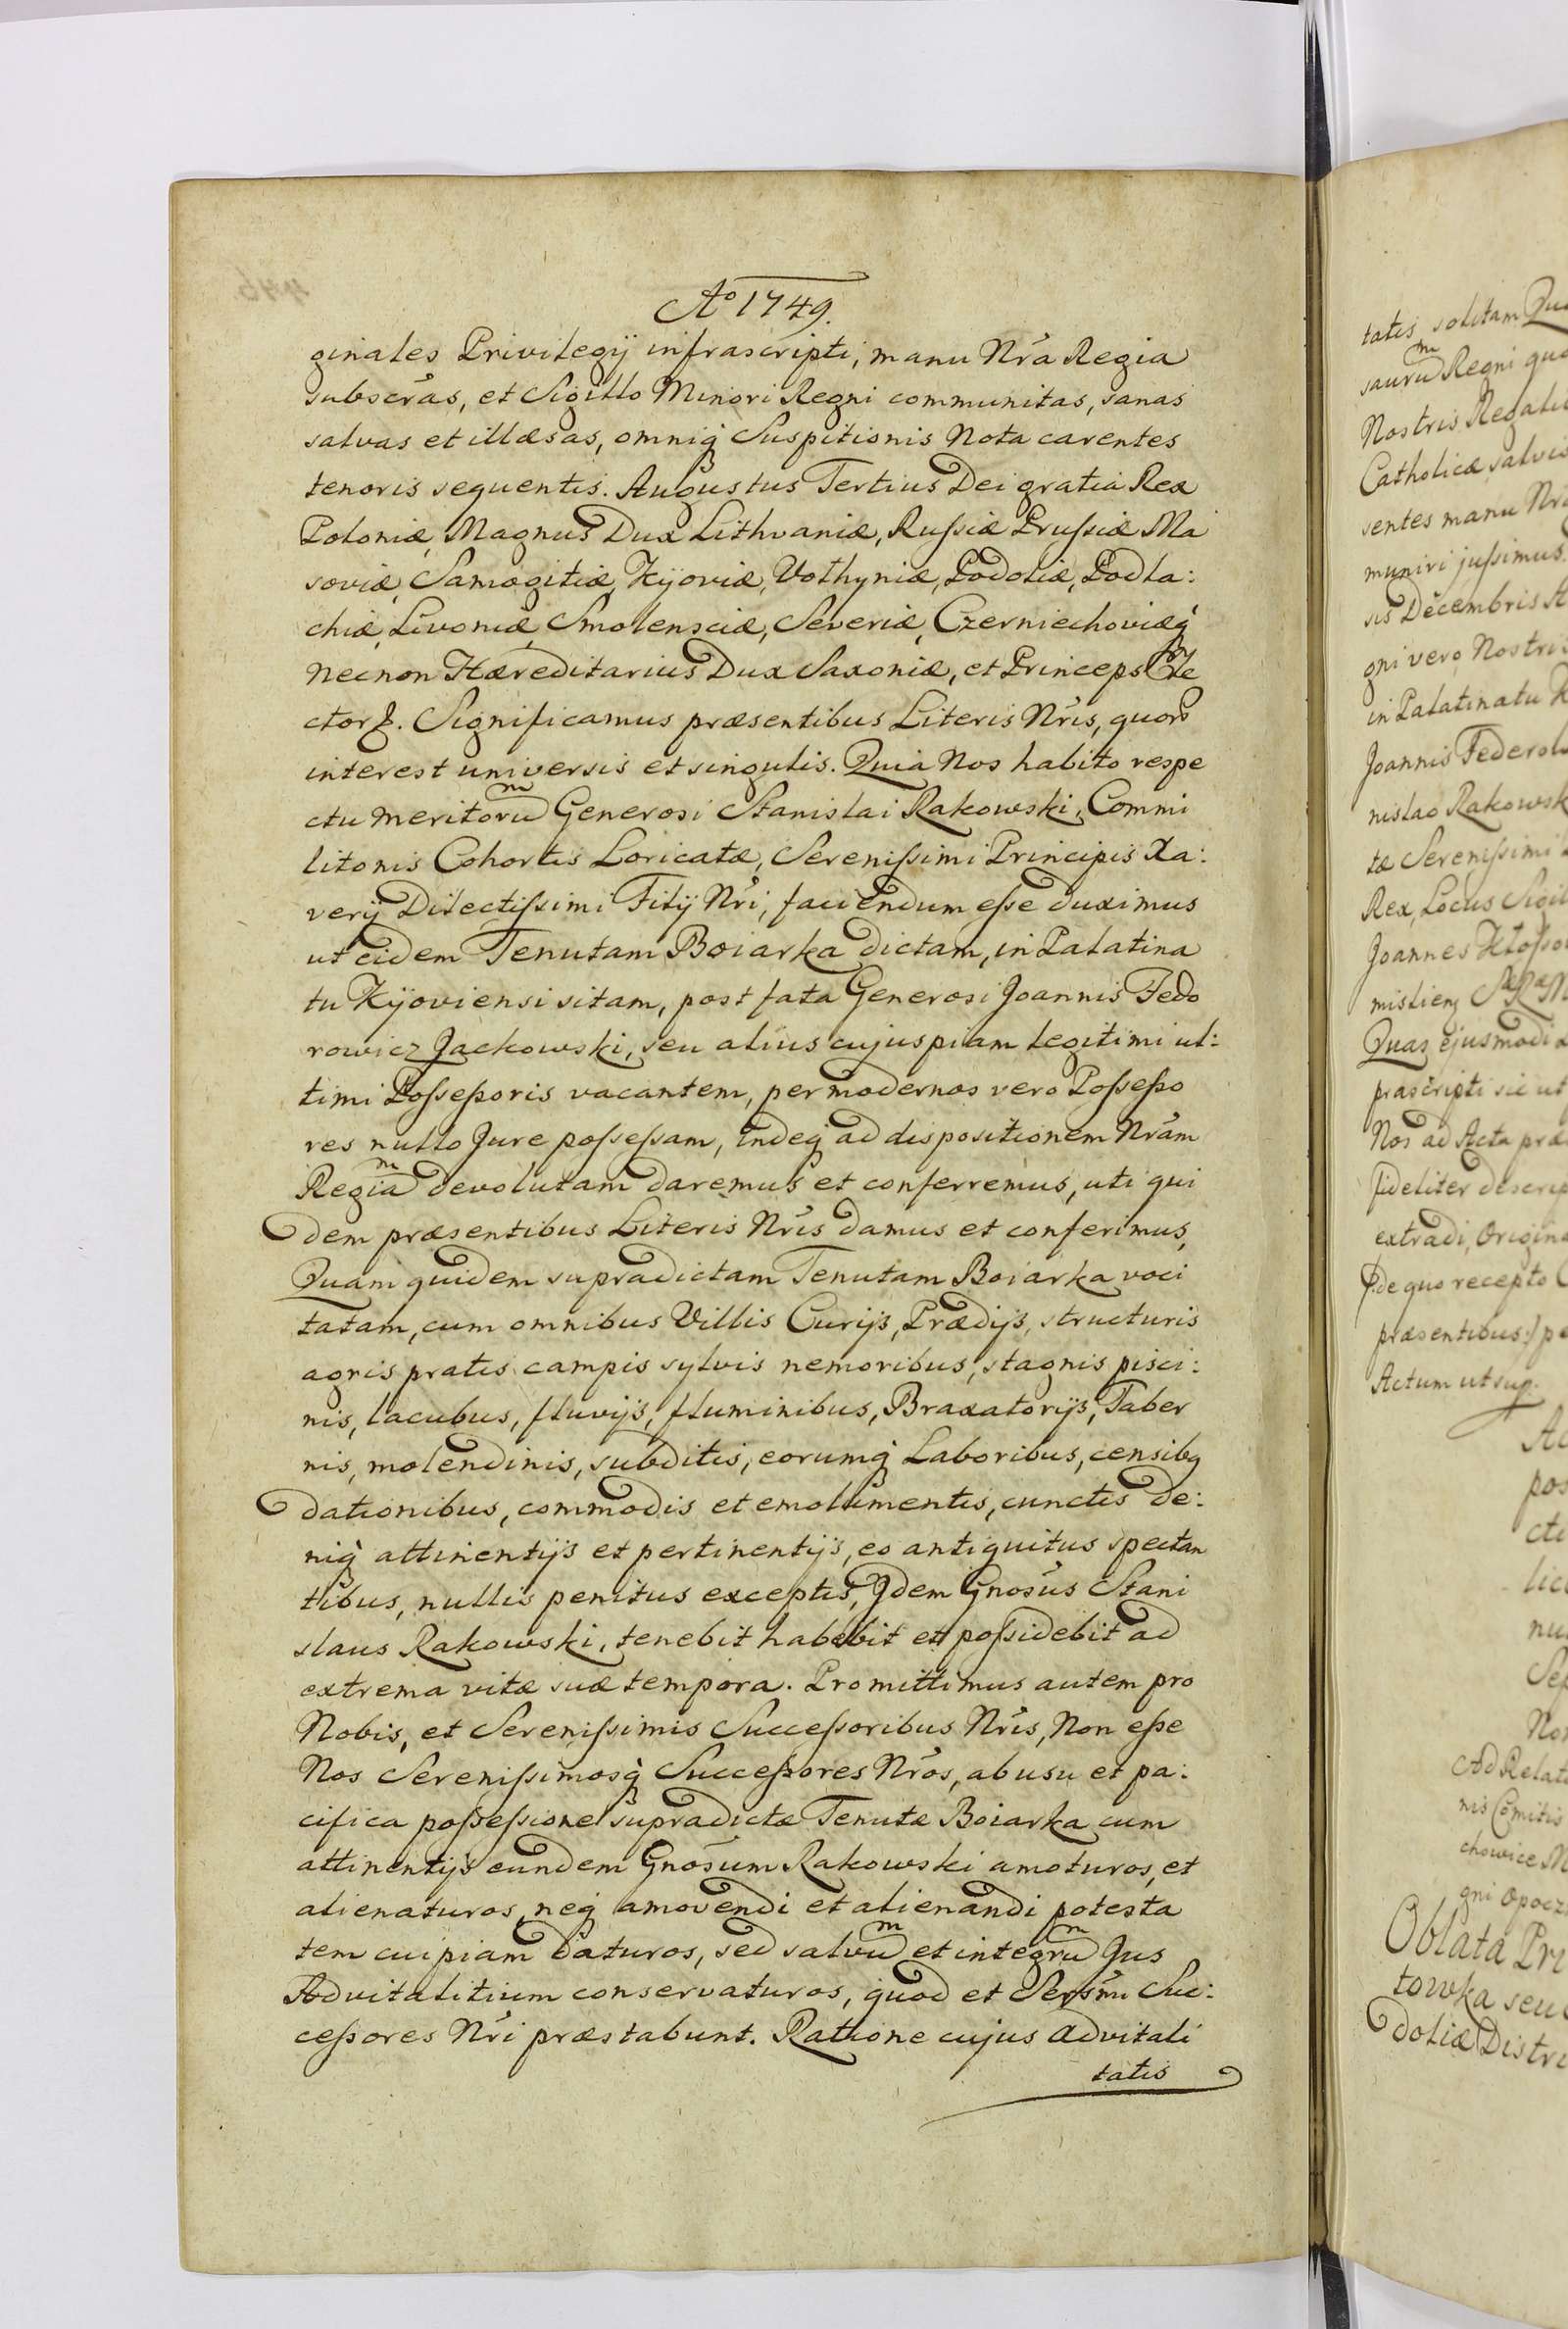 Aº 1749.
ginales Privilegij infrascripti, manu Nra Regia
subscras, et Sigillo Minori Regni communitas, sanas
salvas et illæsas, omniq́ Suspitionis Nota carentes
tenoris sequentis. Augustus Tertius Dei gratia Rex
Poloniæ, Magnus Dux Lithvaniæ, Russiæ Prussiæ Ma
soviæ, Samogitiæ, Kijoviæ, Volhyniæ, Podoliæ, Podla:
chiæ, Livoniæ, Smolensciæ, Severiæ, Czerniechoviæq́
Necnon Hæreditarius Dux Saxoniæ, et Princeps Ele
ctor. Significamus præsentibus Literis Nris, quorũ
interest universis et singulis. Quia Nos habito respe
ctu meritorum Generosi Stanislai Rakowski, Commi
litonis Cohortis Loricatæ, Serenissimi Principis Xa:
verij Dilectissimi Filij Nri, faciendum esse duximus
ut eidem Tenutam Boiarka dictam, in Palatina
tu Kijoviensi sitam, post fata Generosi Joannis Fedo
rowicz Jackowski, seu alius cujuspiam legitimi ul:
timi Possessoris vacantem, per modernos vero Possesso
res nullo Jure possessam, indeq́ ad dispositionem Nram
Regiam devolutam daremus et conferremus, uti qui
dem præsentibus Literis Nris damus et conferimus,
Quam quidem supradictam Tenutam Boiarka voci
tatam, cum omnibus Villis Curijs, Prædijs, structuris
agris pratis campis sylvis nemoribus, stagnis pisci:
nis, lacubus, fluvijs, fluminibus, Braxatorijs, Taber
nis, molendinis, subditis, eorumq́ Laboribus, censibq
dationibus, commodis et emolumentis, cunctis de:
niq́ attinentijs et pertinentijs, eo antiquitus spectan
tibus, nullis penitus exceptis, Jdem Gnosus Stani
slaus Rakowski, tenebit habebit et possidebit ad
extrema vitæ suæ tempora. Promittimus autem pro
Nobis, et Serenissimis Successoribus Nris, Non esse
Nos Serenissimosq́ Successores Nros, ab usu et pa:
cifica possessione supradictæ Tenutæ Boiarka cum
attinentijs eundem Gnosum Rakowski amoturos, et
alienaturos, neq́ amovendi et alienandi potesta
tem cuipiam daturos, sed salvum et integrum Jus
Advitalitium conservaturos, quod et Sersmi Suc:
cessores Nri præstabunt. Ratione cujus advitali
tatis
tatis solitam
saurum Regni
Nostris
Catholicæ salvis
sentes manu
muniri jussimus.
sis Decembris
gni vero Nostri
in Palatinatu
Joannis
nislao
tæ Serenissimi
Rex, Locus
Joannes
Quas ejusmodi
sic ut
Nos ad Acta
fideliter
extradi,
de quo recepto
præsentibus
Actum ut sup.
Oblata
towka seu
doliæ